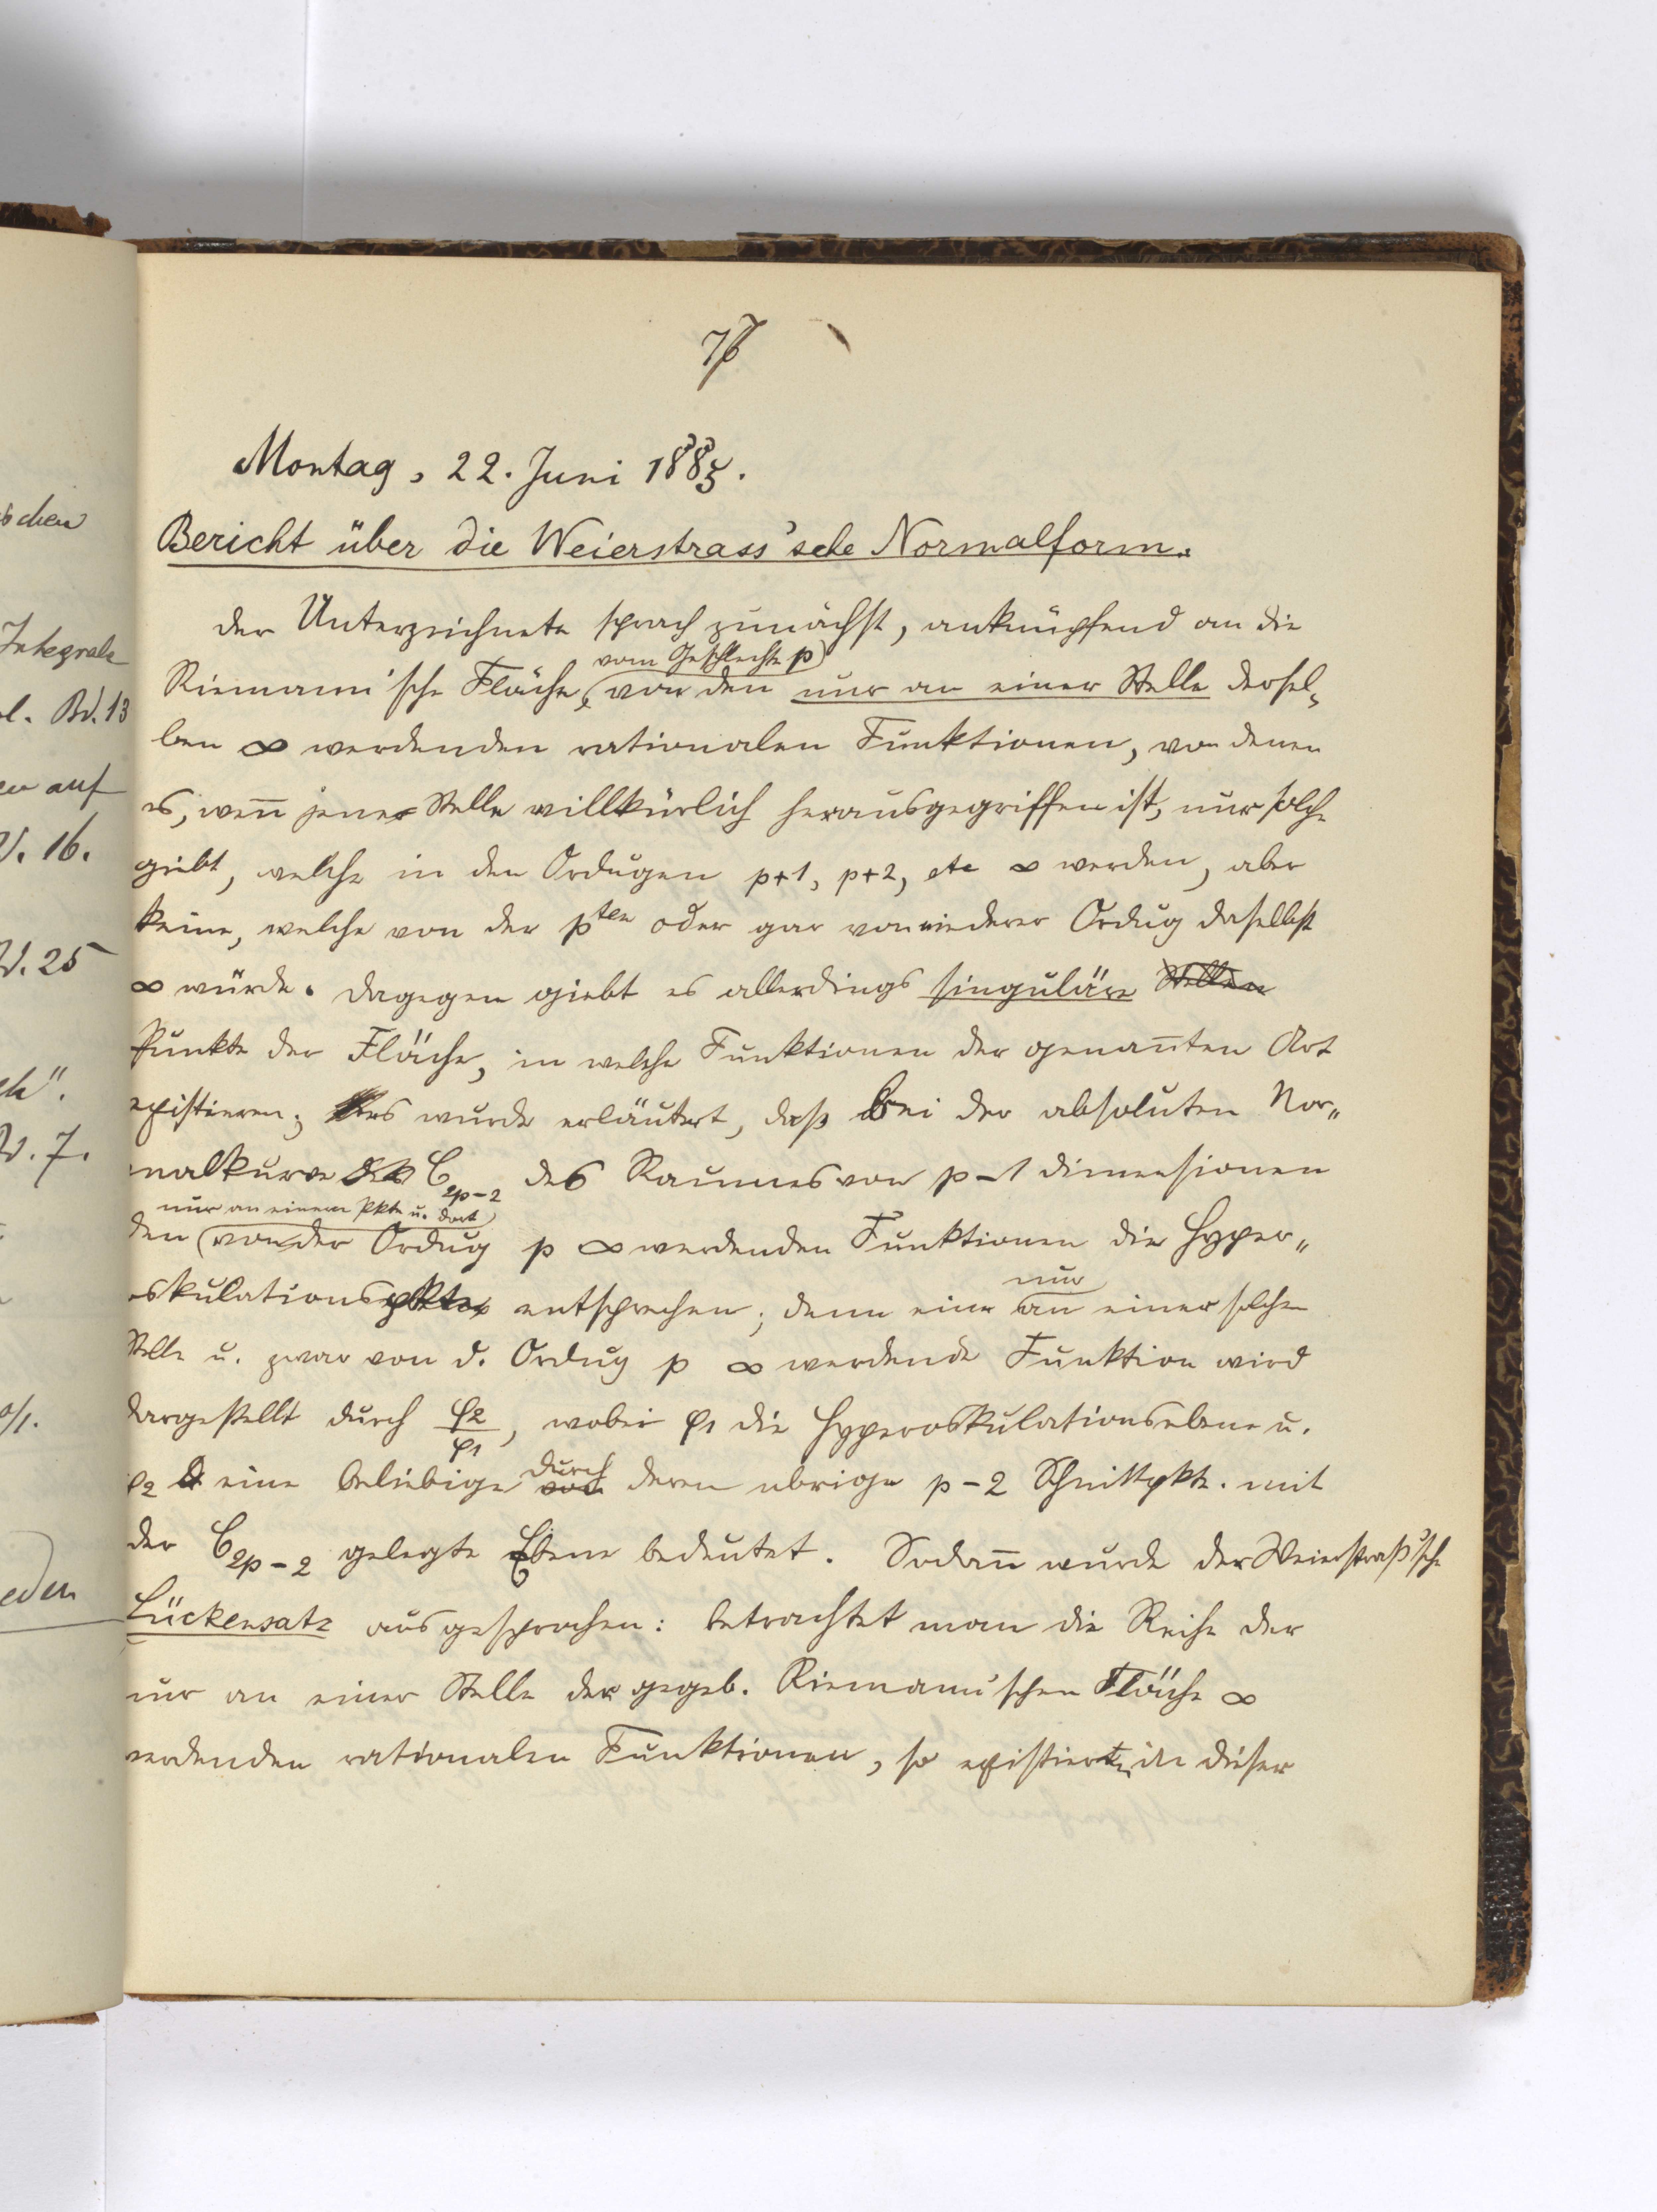 schen
Integrale
Bd. 13
en auf
16.
25
ch".
7.
eden
Montag, 22. Juni 1885.
Bericht über die Weierstrass'sche Normalform.
Der Unterzeichnete sprach zunächst, anknüpfend an die
vom Geschlechte p
Riemann'sche Fläche, von den nur an einer Stelle dersel-
ben ∞ werdenden rationalen Funktionen, von denen
es, wenn jene Stelle willkürlich herausgegriffen ist, nur solche
giebt, welche in den Ordngen p+1, p+2, etc ∞ werden, aber
keine, welche von der pten oder gar von niederer Ordng daselbst
∞ würde. Dagegen giebt es allerdings singuläre Stellen
Punkte der Fläche, in welche Funktionen der genannten Art
existieren; es wurde erläutert, daß bei der absoluten Nor-
malkurve C2p-2 des Raumes von p-1 Dimensionen
nur an einem Pkte u. dort
den von der Ordng p ∞ werdenden Funktionen die Hyper-
nur
oskulationspkte entsprechen; denn eine an einer solchen
Stelle u. zwar von d. Ordng p ∞ werdende Funktion wird
dargestellt durch φ2/φ1, wobei φ1 die Hyperoskulationsebene u.
durch
φ2 eine beliebige von deren übrige p-2 Schnittpkte. mit
der C2p-2 gelegte Ebene bedeutet. Sodann wurde der Weierstraß'sche
Lückensatz ausgesprochen: betrachtet man die Reihe der
nur an einer Stelle der gegeb. Riemann'schen Fläche ∞
werdenden rationalen Funktionen, so existieren in dieser